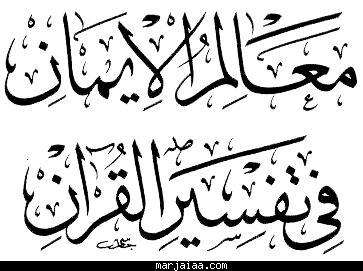 مَعَالِمُ الْإِيمَانِ
فِي تَفْسِيرِ الْقُرْآنِ
marjaiaa.com